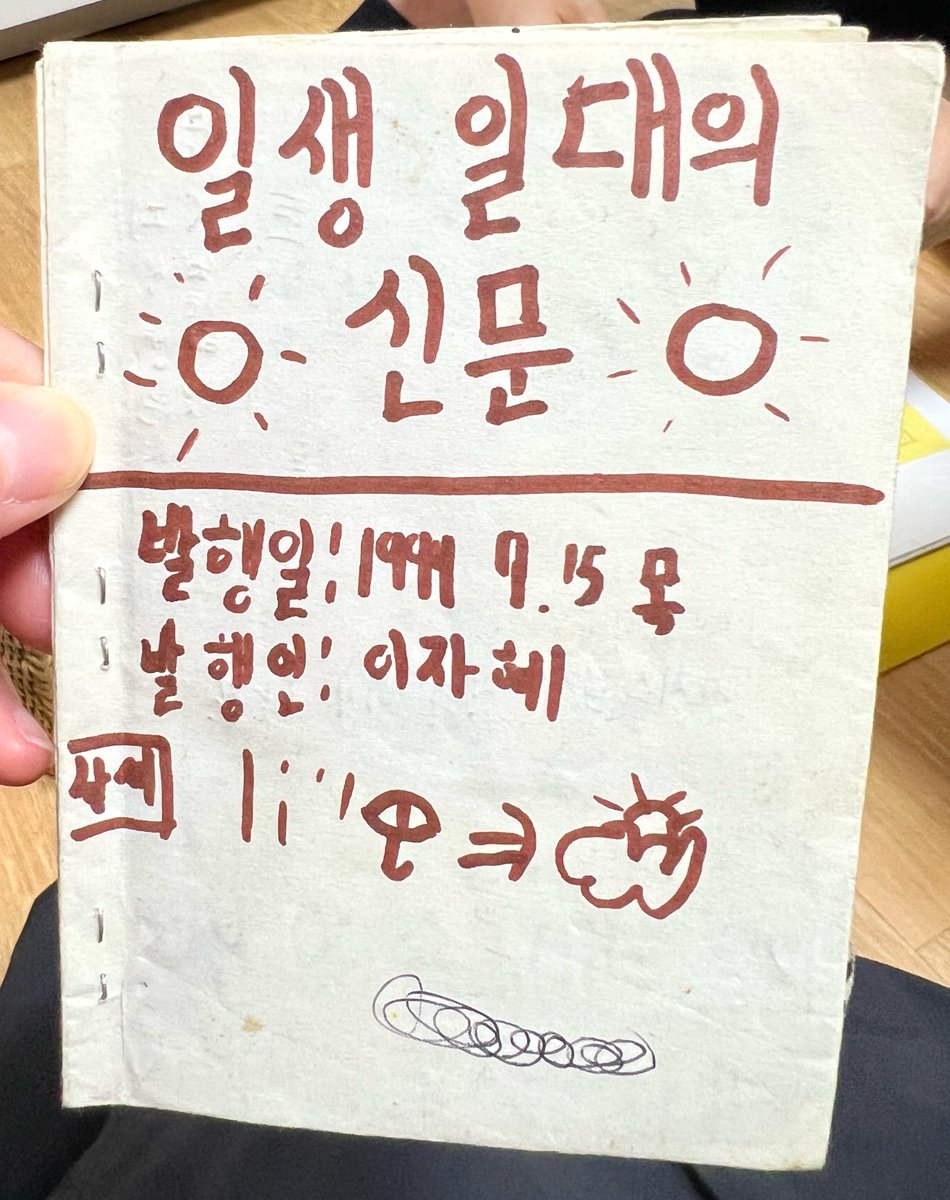 일생 일대의
신문
발행일: 1999 7. 15 목
발행인: 이자혜
날씨